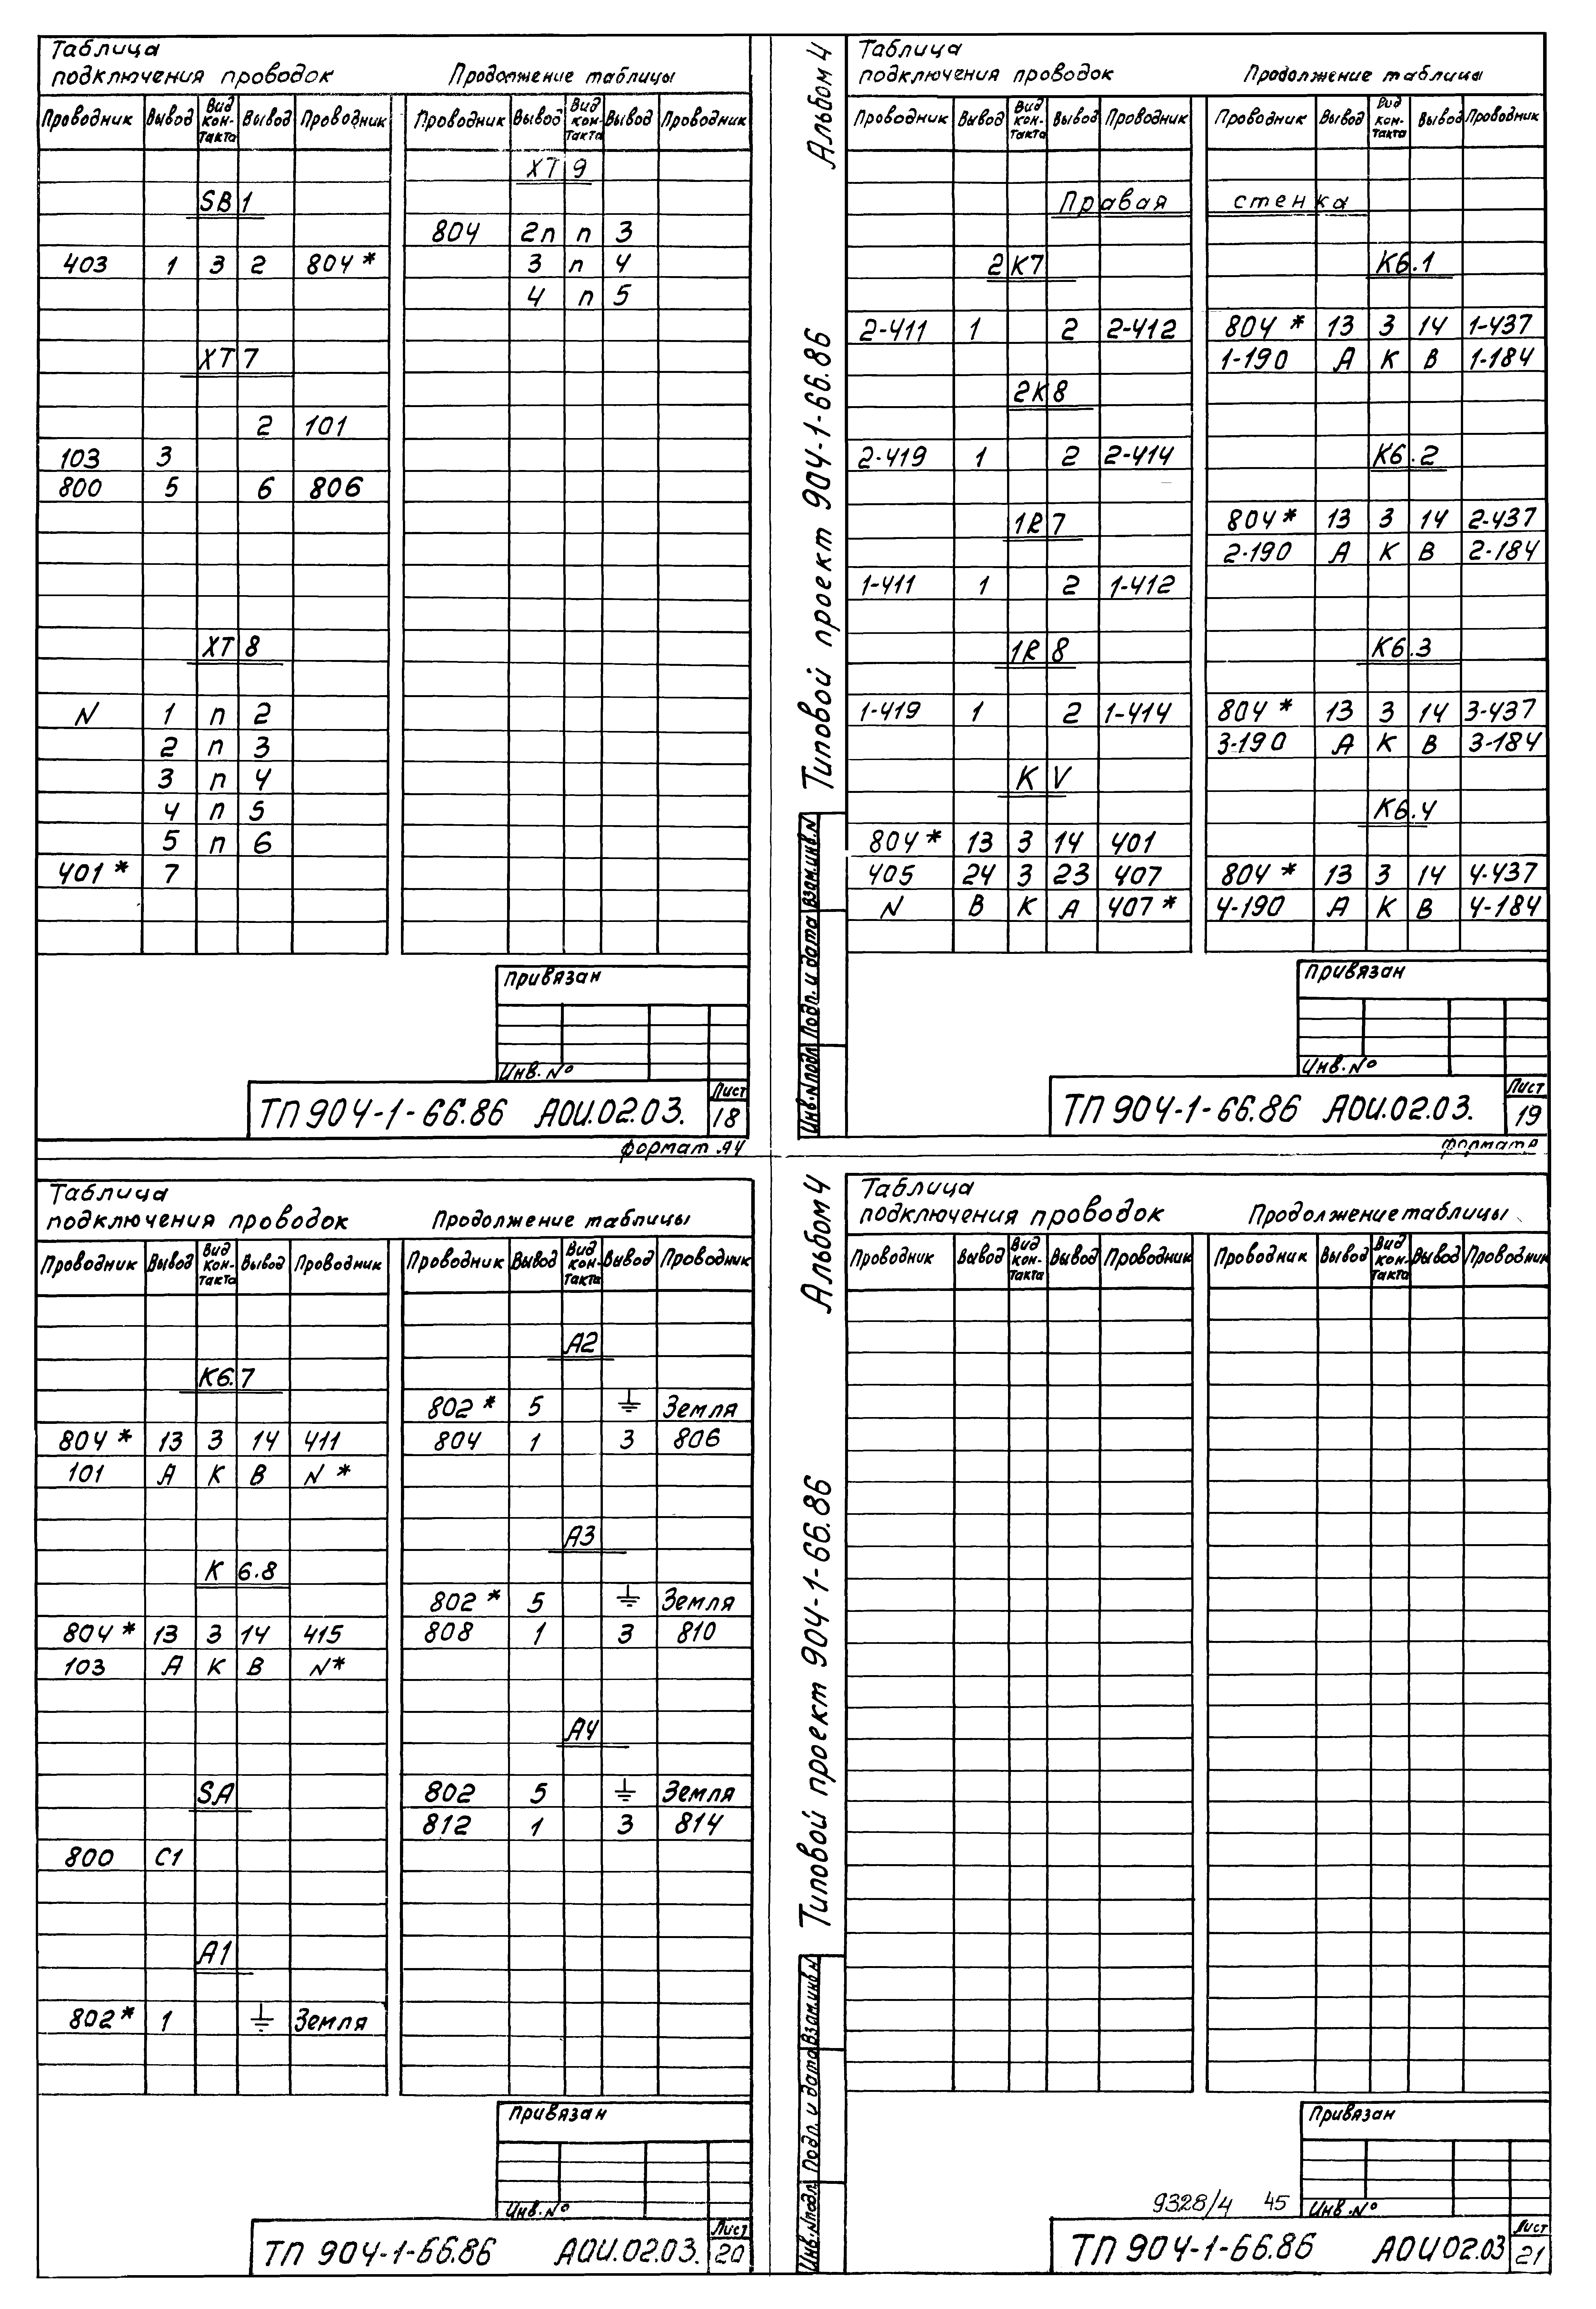 Таблица
подключения проводок Продолжение таблицы
Проводник Вывод Вид кон-такта Вывод Проводник Проводник Вывод Вид кон-такта Вывод Проводник
XT 9
SB 1
804 2п п 3
403 1 3 2 804 * 3 п 4
4 п 5
XT 7
2 101
103 3
800 5 6 806
XT 8
N 1 п 2
2 п 3
3 п 4
4 п 5
5 п 6
401 * 7
Привязан
Инв. №
ТП 904-1-66.86 АОИ.02.03. Лист 18
формат А4
Альбом 4
Типовой проект 904-1-66.86
Взам.инв.N
Подп. и дата
Инв.Nподл.
Таблица
подключения проводок Продолжение таблицы
Проводник Вывод Вид кон-такта Вывод Проводник Проводник Вывод Вид кон-такта Вывод Проводник
Правая стенка
2К7 К6.1
2-411 1 2 2-412 804 * 13 3 14 1-437
1-190 А К В 1-184
2К8
2-419 1 2 2-414 К6.2
1R 7 804 * 13 3 14 2-437
2-190 А К В 2-184
1-411 1 2 1-412
1R 8 К6.3
1-419 1 2 1-414 804 * 13 3 14 3-437
3-190 А К В 3-184
К V
К6.4
804 * 13 3 14 401
405 24 3 23 407 804 * 13 3 14 4-437
N В К А 407 * 4-190 А К В 4-184
Привязан
Инв. №
ТП 904-1-66.86 АОИ.02.03. Лист 19
формат А
Таблица
подключения проводок Продолжение таблицы
Проводник Вывод Вид кон-такта Вывод Проводник Проводник Вывод Вид кон-такта Вывод Проводник
А2
К6.7
802 * 5 ⏚ Земля
804 * 13 3 14 411 804 1 3 806
101 А К В N *
А3
К 6.8
802 * 5 ⏚ Земля
804 * 13 3 14 415 808 1 3 810
103 А К В N *
А4
SA 802 5 ⏚ Земля
812 1 3 814
800 С1
А1
802 * 1 ⏚ Земля
Привязан
Инв. №
ТП 904-1-66.86 АОИ.02.03. Лист 20
Альбом 4
Типовой проект 904-1-66.86
Взам.инв.N
Подп. и дата
Инв.Nподл.
Таблица
подключения проводок Продолжение таблицы
Проводник Вывод Вид кон-такта Вывод Проводник Проводник Вывод Вид кон-такта Вывод Проводник
Привязан
9328/4 45 Инв. №
ТП 904-1-66.86 АОИ 02.03 Лист 21